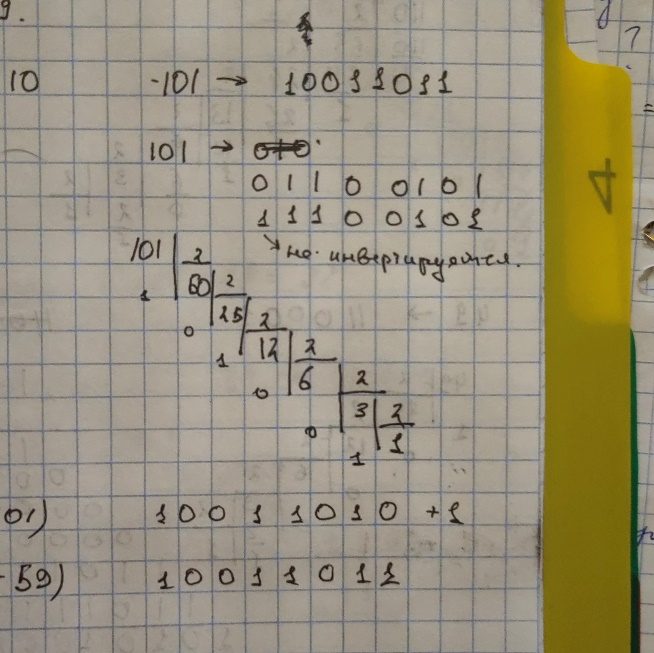 9.
10 -101 → 10011011
101 → 010
0 1 1 0 0 1 0 1
1 1 1 0 0 1 0 1
не инвертируется.
101 2
1 50 2
0 25 2
1 12 2
0 6 2
0 3 2
1 1
01) 1 0 0 1 1 0 1 0 +1
59) 1 0 0 1 1 0 1 1
4
?